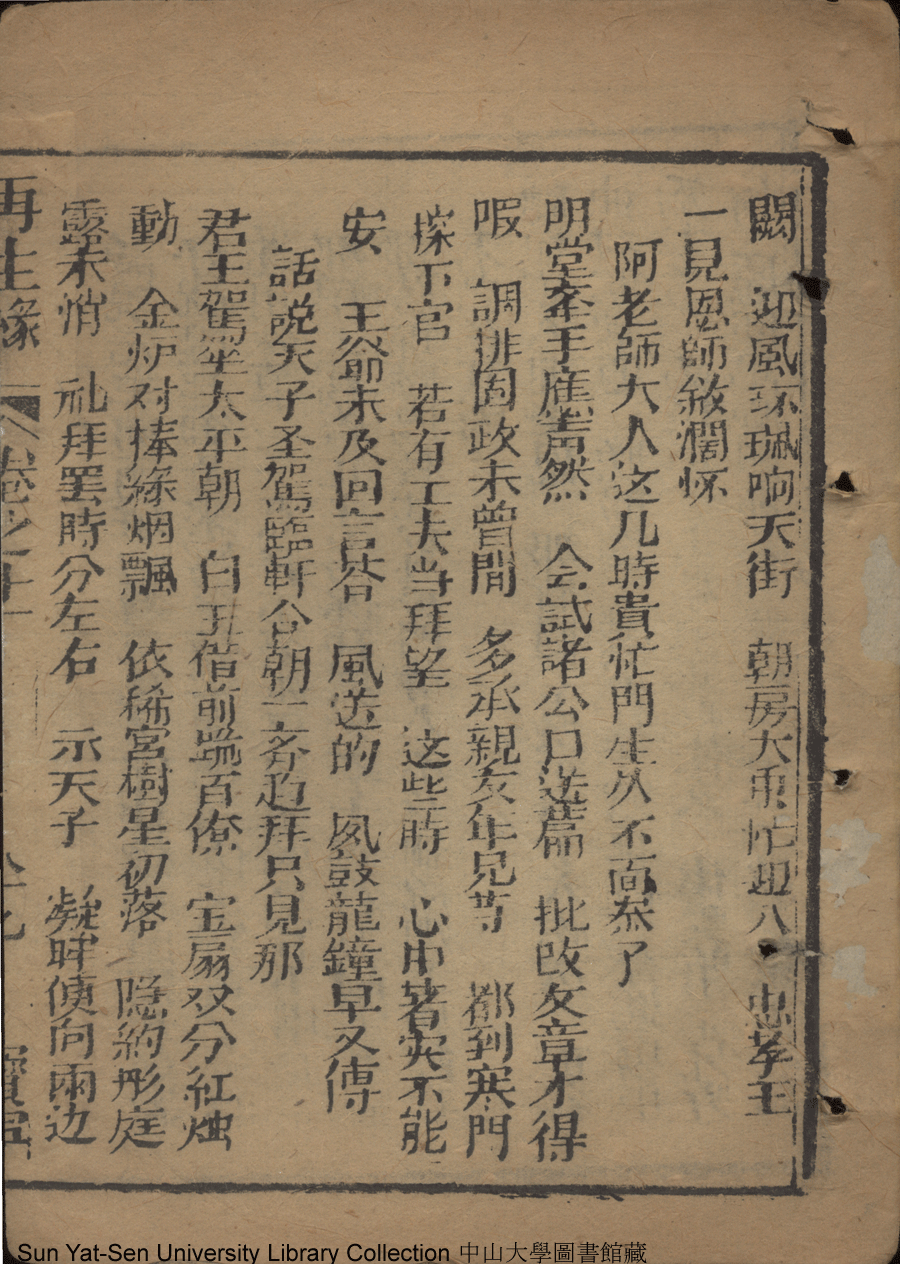 闕 迎風环珮响天街 朝房大乗忙迎八 忠孝王
一見恩師敘濶怀
阿老師大人这几時貴忙門生久不面叅了
明堂奉手應声然 会試諸公口送篇 批改文章才得
暇 調排国政未曾閒 多承親友年兄等 都到寒門
探下官 若有工夫当拜望 这些時 心中著实不能
安 王爺未及回言荅 風送的 夙鼓龍鐘早又傳
話説天子圣駕臨軒合朝一齐趋拜只見那
君王駕坐太平朝 白玉偕前端百僚 宝扇双分紅烛
動 金炉对捧綠烟飄 依稀宮樹星初落 隐約彤庭
露未悄 礼拜罢時分左右 示天子 凝眸便向兩边
再生緣 卷之十
Sun Yat-Sen University Library Collection 中山大學圖書館藏